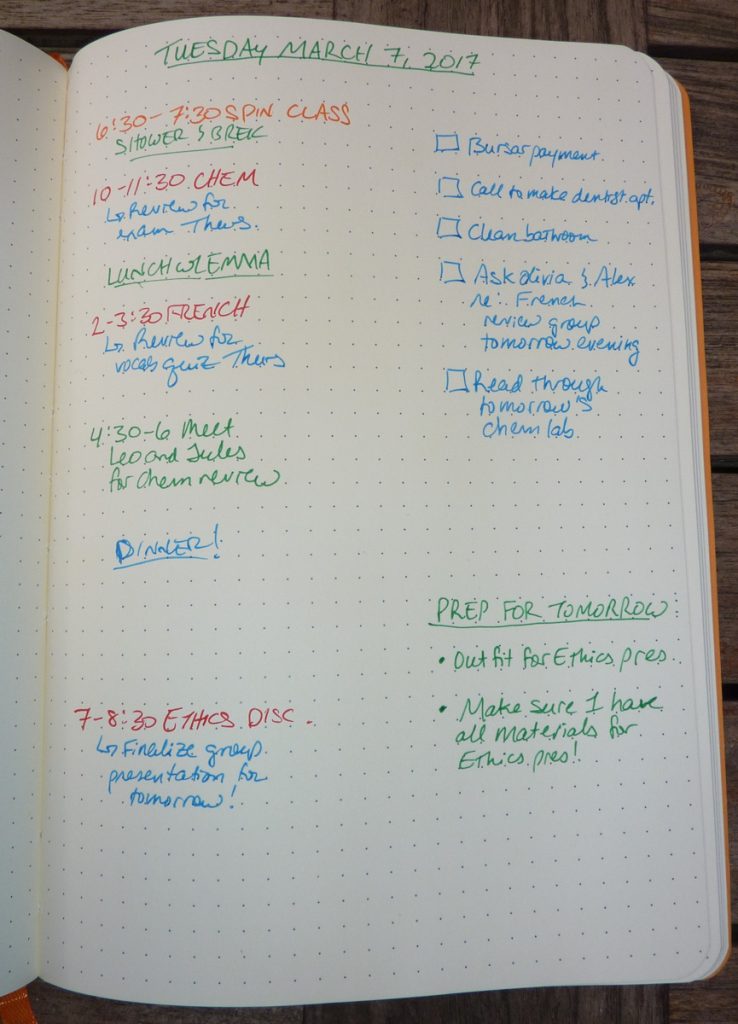 TUESDAY MARCH 7, 2017
6:30-7:30 SPIN CLASS
SHOWER & BREK
10-11:30 CHEM
↳ Review for
exam Thurs.
LUNCH W/ EMMA
2-3:30 FRENCH
↳ Review for
vocab quiz Thurs
4:30-6 Meet
Leo and Jules
for Chem review
DINNER!
7-8:30 ETHICS DISC.
↳ Finalize group
presentation for
tomorrow!
☐ Bursar payment
☐ Call to make dentist apt.
☐ Clean bathroom
☐ Ask Olivia & Alex
re: French
review group
tomorrow evening
☐ Read through
tomorrow's
chem lab
PREP FOR TOMORROW:
• Outfit for Ethics pres.
• Make sure I have
all materials for
Ethics pres!